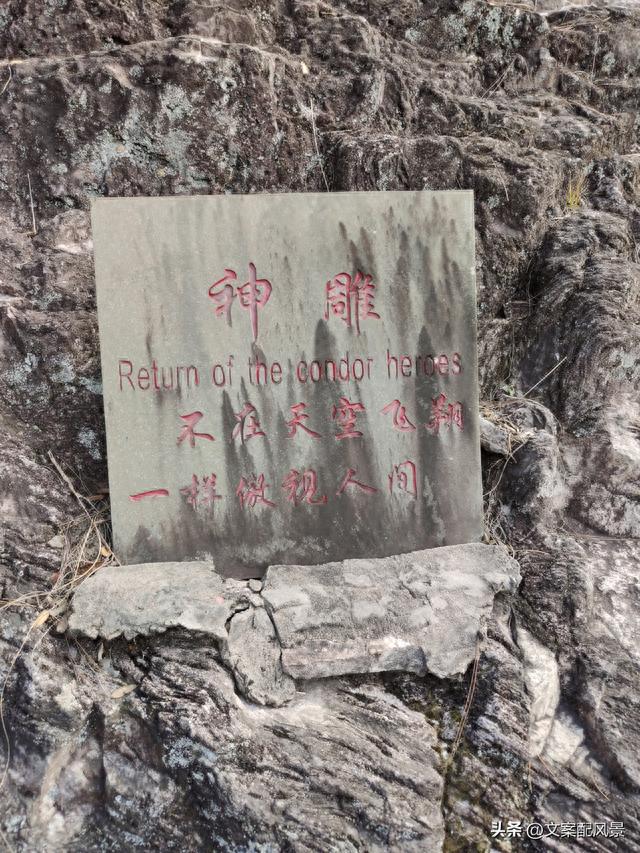 神雕
Return of the condor heroes
不在天空飞翔
一样傲视人间
头条 @文案配风景